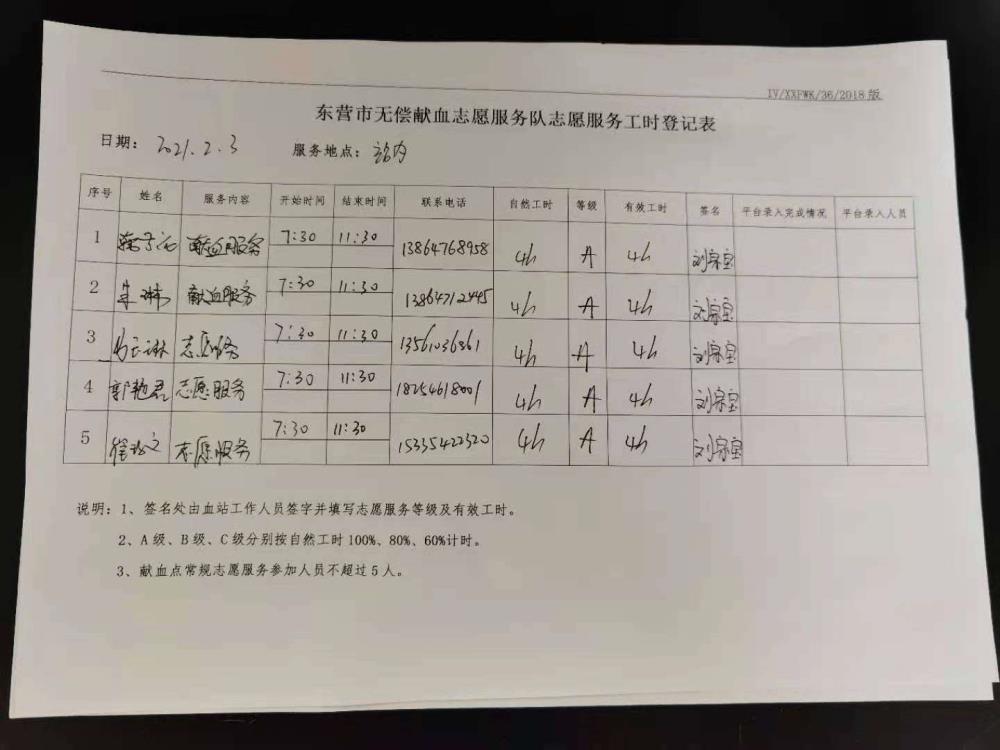 IV/XXFWK/36/2018版
东营市无偿献血志愿服务队志愿服务工时登记表
日期: 2021.2.3 服务地点: 站内
序号 姓名 服务内容 开始时间 结束时间 联系电话 自然工时 等级 有效工时 签名 平台录入完成情况 平台录入人员
1 献血服务 7:30 11:30 13864768958 4h A 4h 刘宗宝
2 朱琳 献血服务 7:30 11:30 13864712445 4h A 4h 刘宗宝
3 志愿服务 7:30 11:30 13561036361 4h A 4h 刘宗宝
4 郭艳君 志愿服务 7:30 11:30 18254618001 4h A 4h 刘宗宝
5 志愿服务 7:30 11:30 15335422320 4h A 4h 刘宗宝
说明: 1、签名处由血站工作人员签字并填写志愿服务等级及有效工时。
2、A级、B级、C级分别按自然工时100%、80%、60%计时。
3、献血点常规志愿服务参加人员不超过5人。